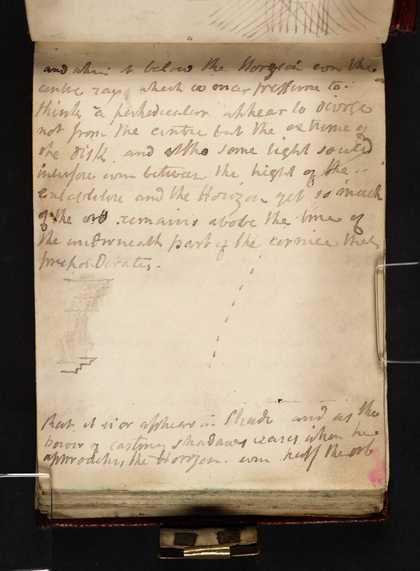 and when it below the Horizon even the
centre ray, which is once
think a perpendicular appear to diverge
not from the centre but the extreme of
the disk. and altho some light
interfere even between the hight of the
entablature and the Horizon yet so much
of the orb remains above the line of
the underneath part of the cornice that
preponderates.
that it is or appears in Shade and as the
power of casting shadows ceases when he
approaches the Horizon. even half the orb